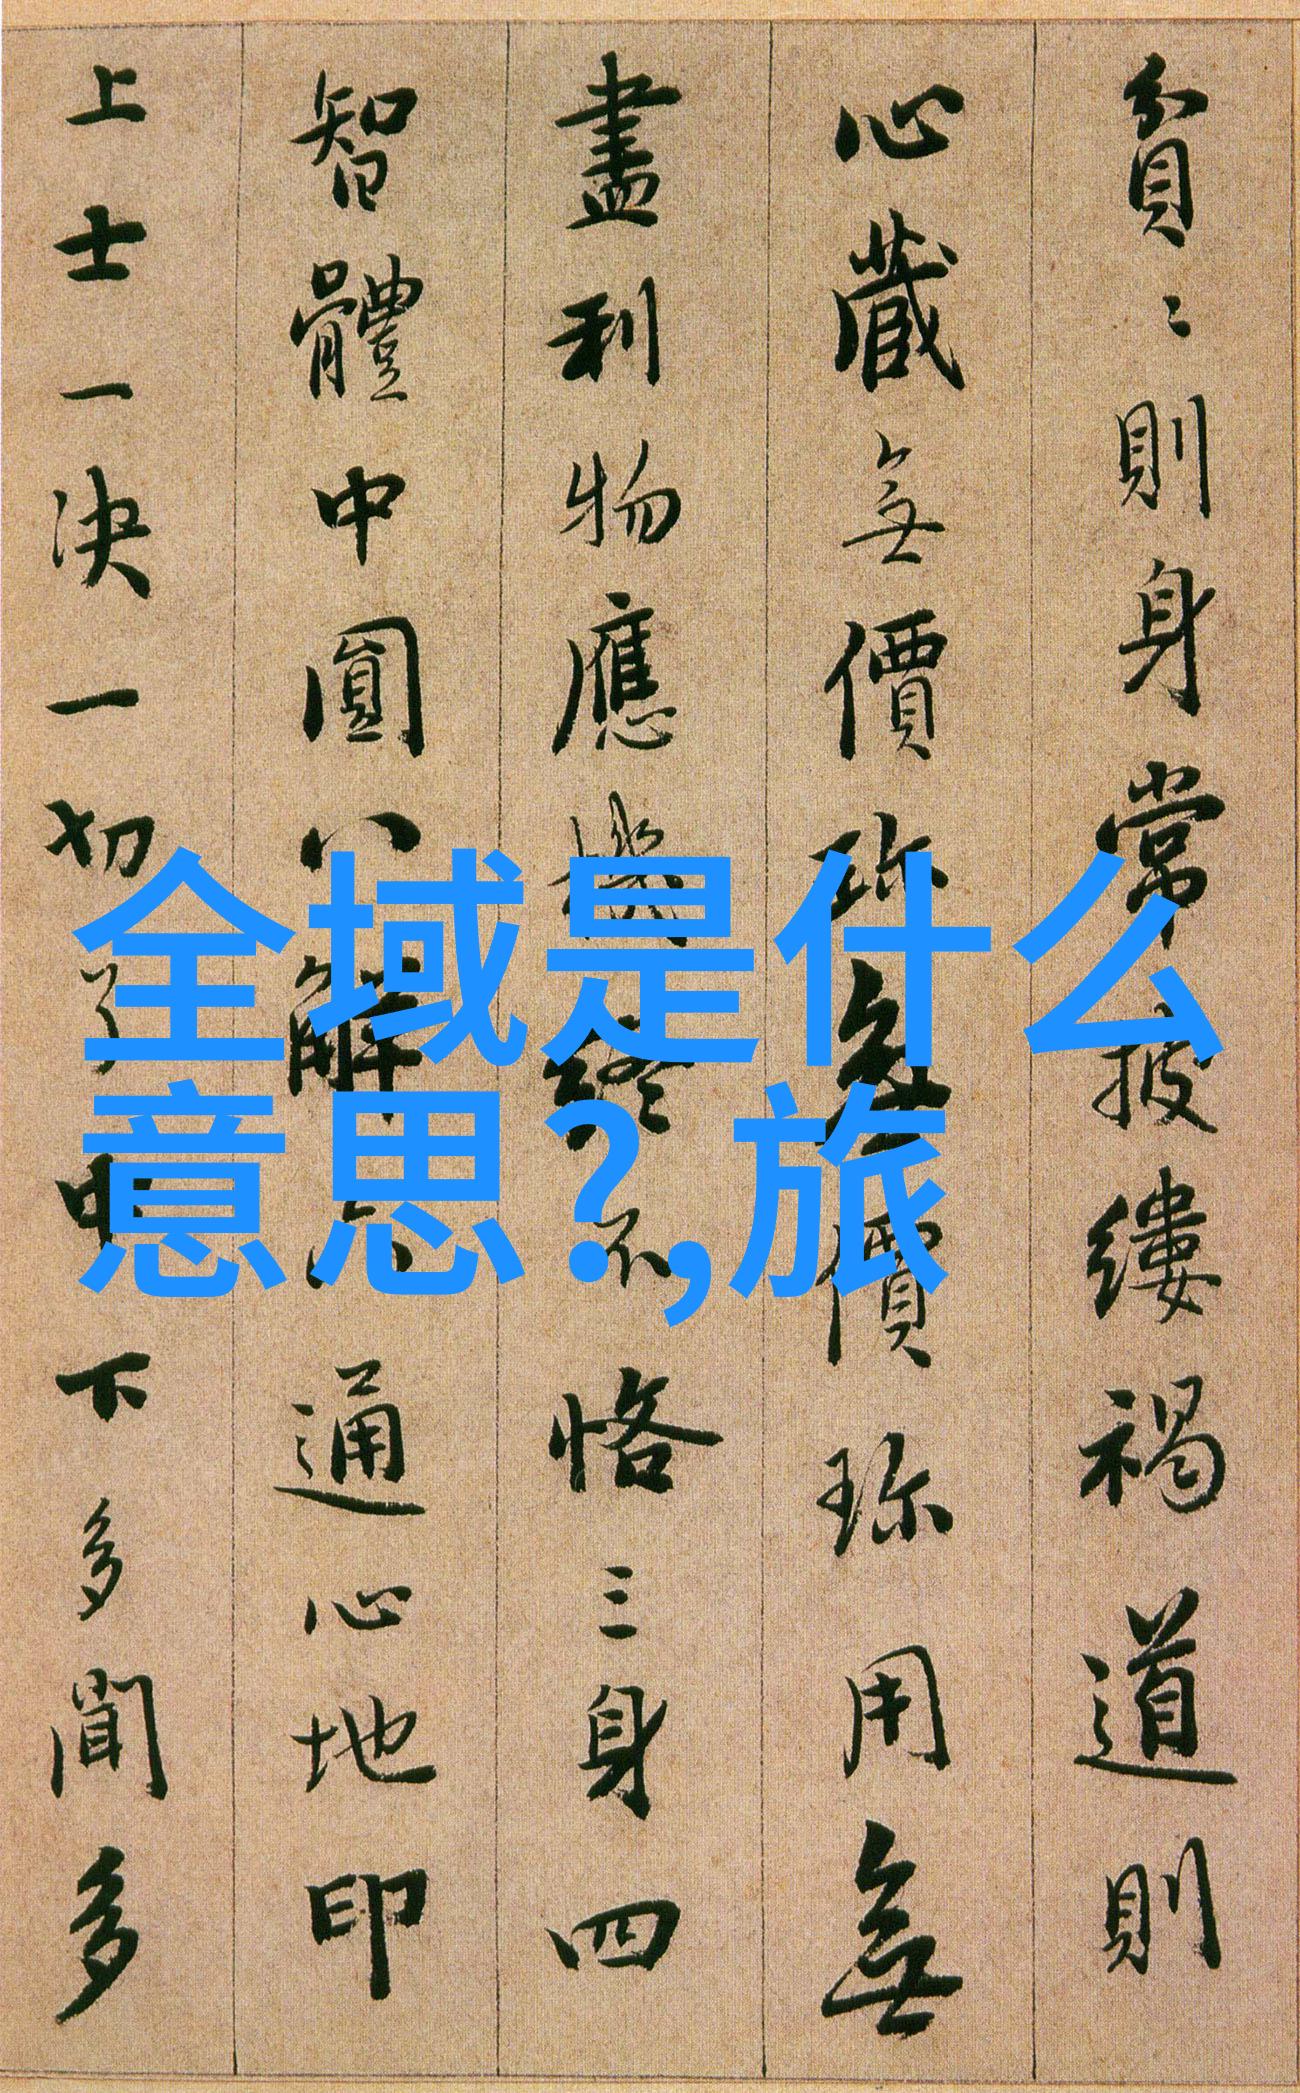 貧〻則身常披縷褐道則
心藏無價珎無價珎用無
盡利物應機終不恪三身四
智體中圓八解六通心地印
上士一決一切了中下多聞多
全域是什么
意思?,旅